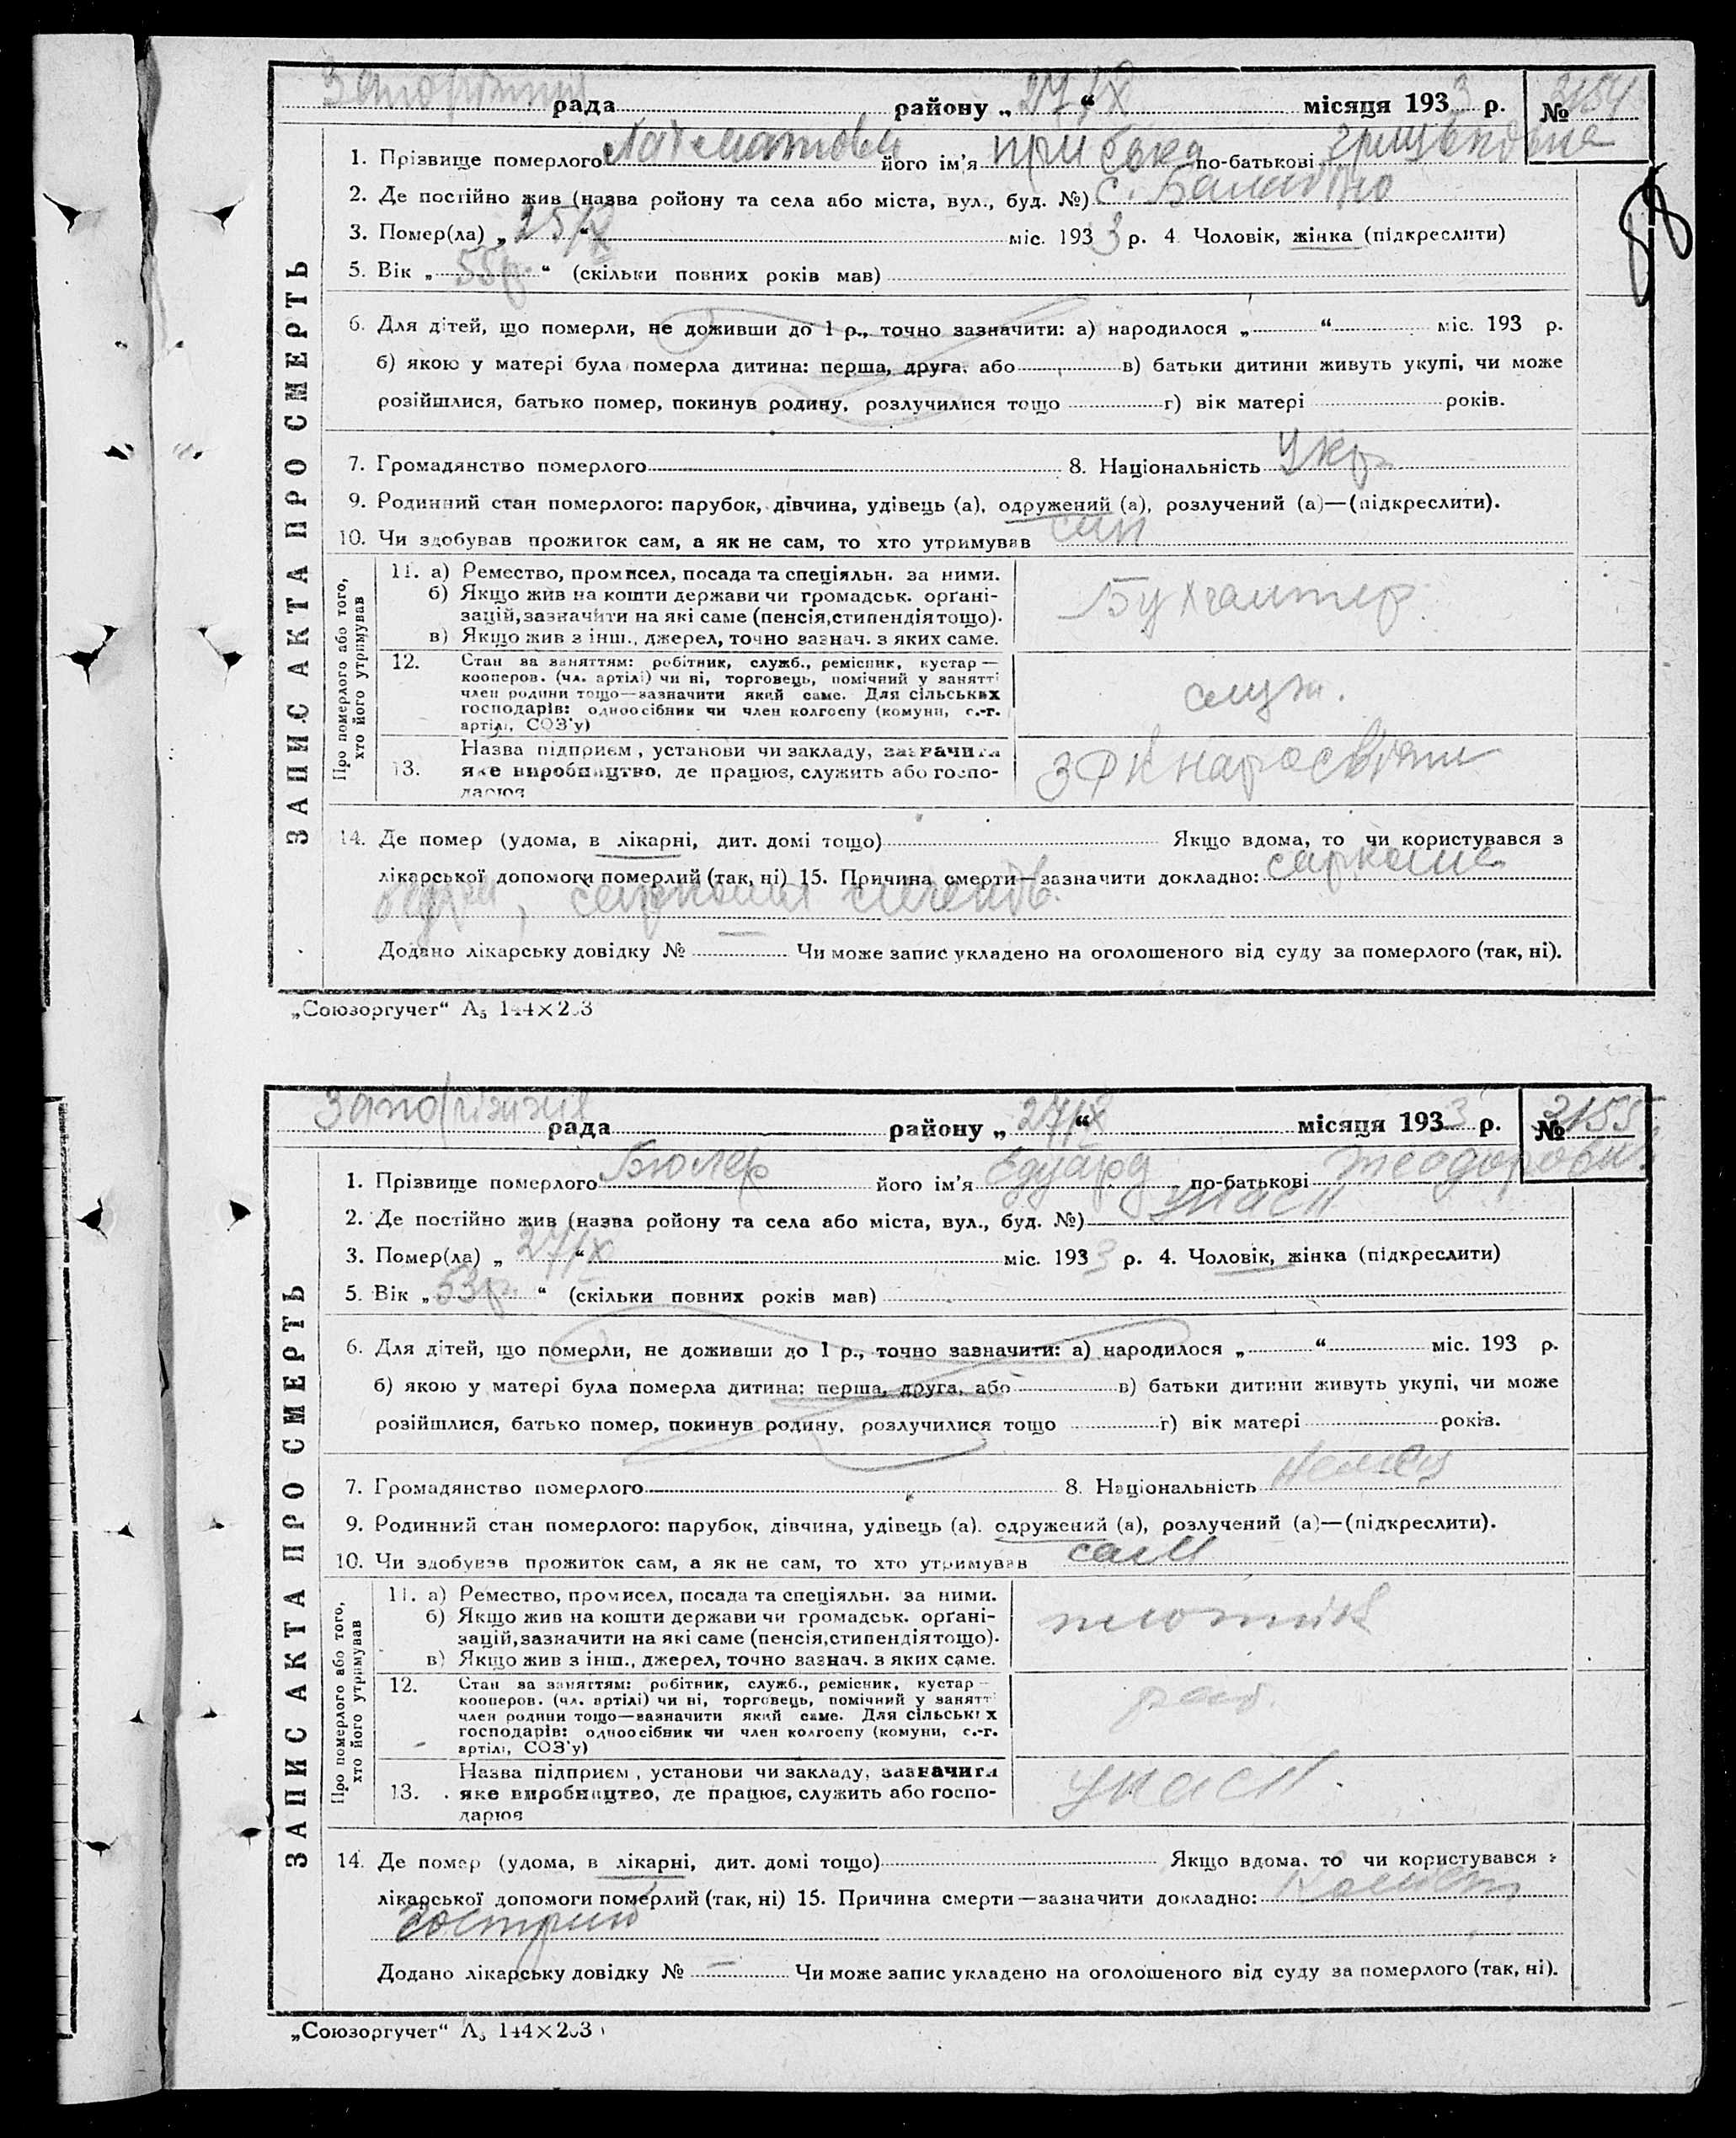 рада району „ 27/X “ місяця 1933 р. № 3154
1. Прізвище померлого його ім'я по-батькові
2. Де постійно жив (назва ройону та села або міста, вул., буд. №) с.
3. Помер(ла) „ 25/X “ міс. 1933 р. 4 Чоловік, жінка (підкреслити)
5. Вік „ 55р. “ (скільки повних років мав)
58
ЗАПИС АКТА ПРО СМЕРТЬ
6. Для дітей, що померли, не доживши до 1 р., точно зазначити: а) народилося „ “ міс. 193 р.
б) якою у матері була померла дитина: перша, друга, або в) батьки дитини живуть укупі, чи може
розійшлися, батько помер, покинув родину, розлучилися тощо г) вік матері років.
7. Громадянство померлого 8. Національність Укр
9. Родинний стан померлого: парубок, дівчина, удівець (а), одружений (а), розлучений (а)—(підкреслити).
10. Чи здобував прожиток сам, а як не сам, то хто утримував сам
Про померлого або того,
хто його утримував
11. а) Ремество, промисел, посада та спеціяльн. за ними.
б) Якщо жив на кошти держави чи громадськ. орґані-
зацій, зазначити на які саме (пенсія, стипендія тощо).
в) Якщо жив з інш., джерел, точно зазнач. з яких саме.
Бухгалтер
12. Стан за заняттям: робітник, служб., ремісник, кустар—
кооперов. (чл. артілі) чи ні, торговець, помічний у занятті
член родини тощо—зазначити який саме. Для сільських
господарів: одноосібник чи член колгоспу (комуни, с.-г.
артілі, СОЗ'у)
служ.
13. Назва підприєм, установи чи закладу, зазначити
яке виробництво, де працює, служить або госпо-
дарює
14. Де помер (удома, в лікарні, дит. домі тощо) Якщо вдома, то чи користувався з
лікарської допомоги померлий (так, ні) 15. Причина смерти—зазначити докладно: саркома
бедра, саркома
Додано лікарську довідку № — Чи може запис укладено на оголошеного від суду за померлого (так, ні).
„Союзоргучет“ А5 144×203
Запоріжжя рада району „ 27/X “ місяця 1933 р. № 3155
1. Прізвище померлого Бюлер його ім'я Едуард по-батькові Теодорович
2. Де постійно жив (назва ройону та села або міста, вул., буд. №)
3. Помер(ла) „ 27/X “ міс. 1933 р. 4. Чоловік, жінка (підкреслити)
5. Вік „ 53р. “ (скільки повних років мав)
ЗАПИС АКТА ПРО СМЕРТЬ
6. Для дітей, що померли, не доживши до 1 р., точно зазначити: а) народилося „ “ міс. 193 р.
б) якою у матері була померла дитина: перша, друга, або в) батьки дитини живуть укупі, чи може
розійшлися, батько помер, покинув родину, розлучилися тощо г) вік матері років.
7. Громадянство померлого 8. Національність
9. Родинний стан померлого: парубок, дівчина, удівець (а). одружений (а), розлучений (а)—(підкреслити).
10. Чи здобував прожиток сам, а як не сам, то хто утримував сам
Про померлого або того,
хто його утримував
11. а) Ремество, промисел, посада та спеціяльн. за ними.
б) Якщо жив на кошти держави чи громадськ. орґані-
зацій, зазначити на які саме (пенсія, стипендія тощо).
в) Якщо жив з інш., джерел, точно зазнач. з яких саме.
12. Стан за заняттям: робітник, служб., ремісник, кустар—
кооперов. (чл. артілі) чи ні, торговець, помічний у занятті
член родини тощо—зазначити який саме. Для сільських
господарів: одноосібник чи член колгоспу (комуни, с.-г.
артілі, СОЗ'у)
роб.
13. Назва підприєм, установи чи закладу, зазначити
яке виробництво, де працює, служить або госпо-
дарює
14. Де помер (удома, в лікарні, дит. домі тощо) Якщо вдома, то чи користувався з
лікарської допомоги померлий (так, ні) 15. Причина смерти—зазначити докладно:
гострий
Додано лікарську довідку № — Чи може запис укладено на оголошеного від суду за померлого (так, ні).
„Союзоргучет“ А5 144×203